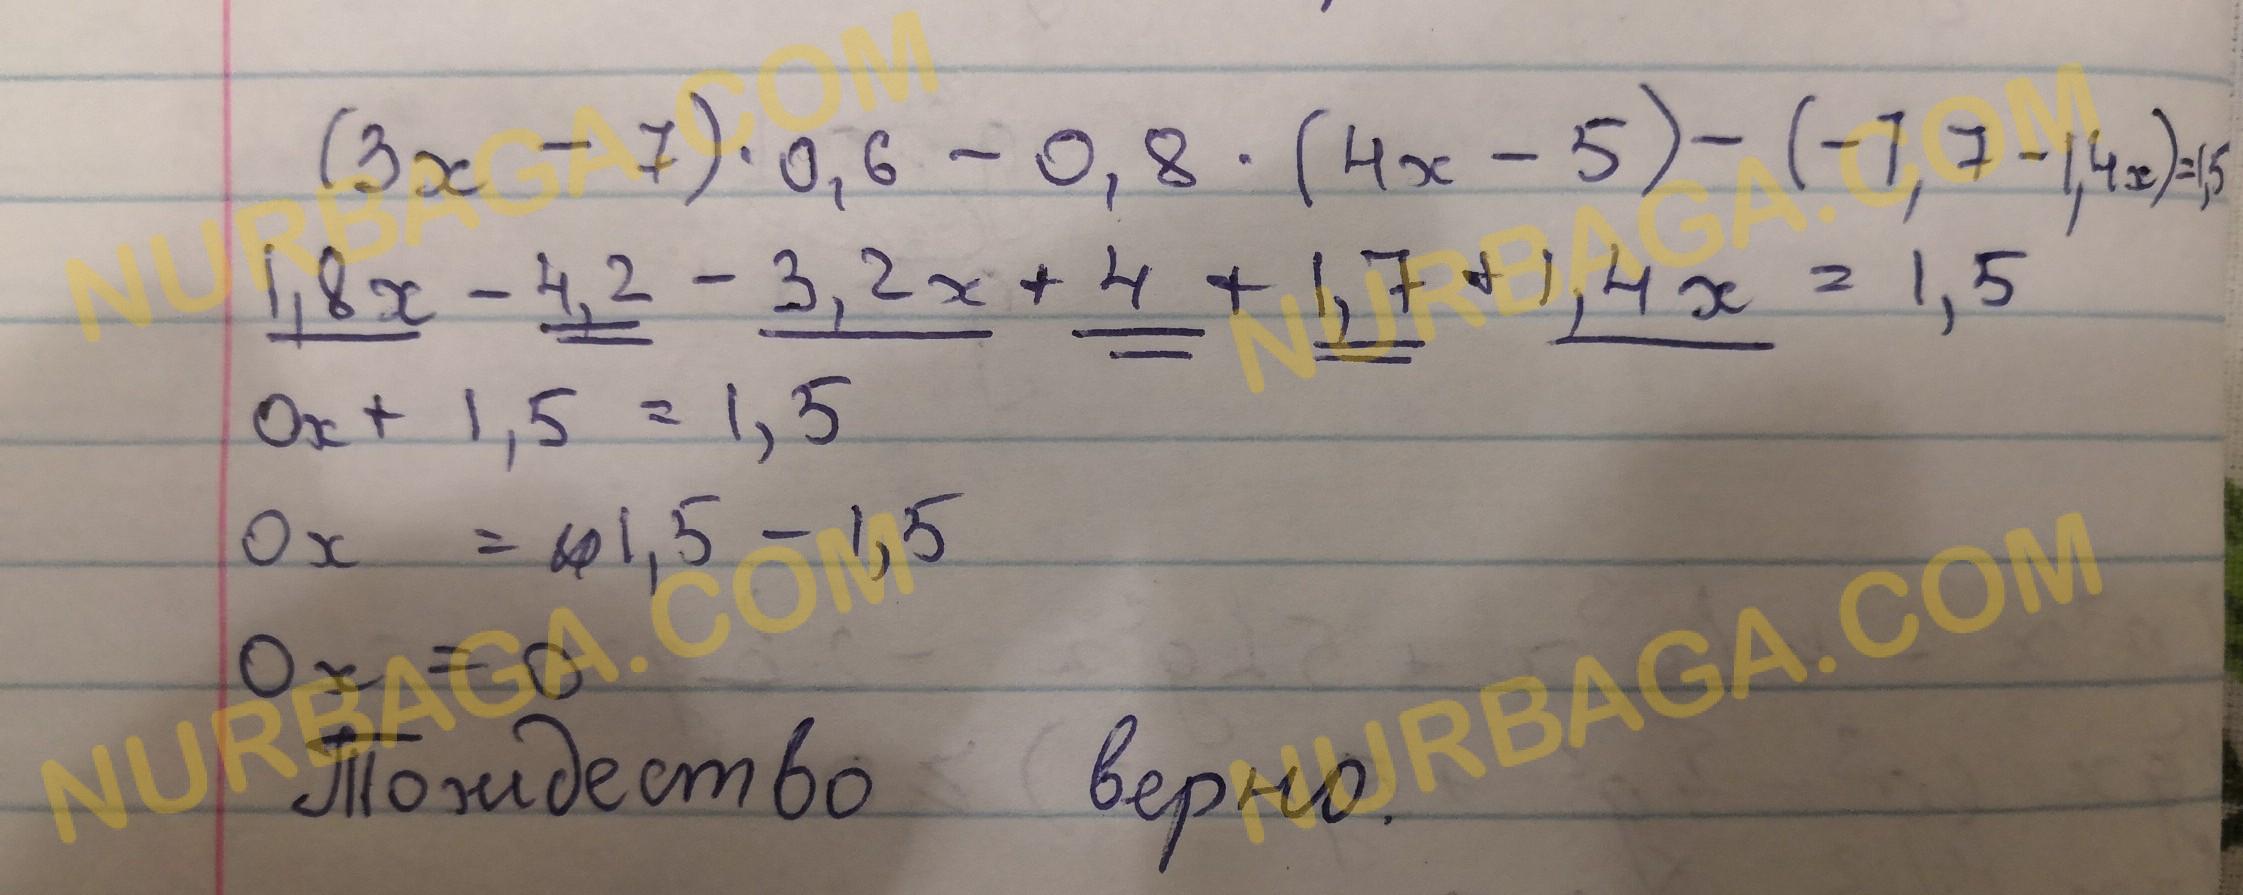 (3x - 7) · 0,6 - 0,8 · (4x - 5) - (-1,7 - 1,4x) = 1,5
1,8x - 4,2 - 3,2x + 4 + 1,7 + 1,4x = 1,5
0x + 1,5 = 1,5
0x = 1,5 - 1,5
0x = 0
Тождество верно.
NURBAGA.COM
NURBAGA.COM
NURBAGA.COM
NURBAGA.COM